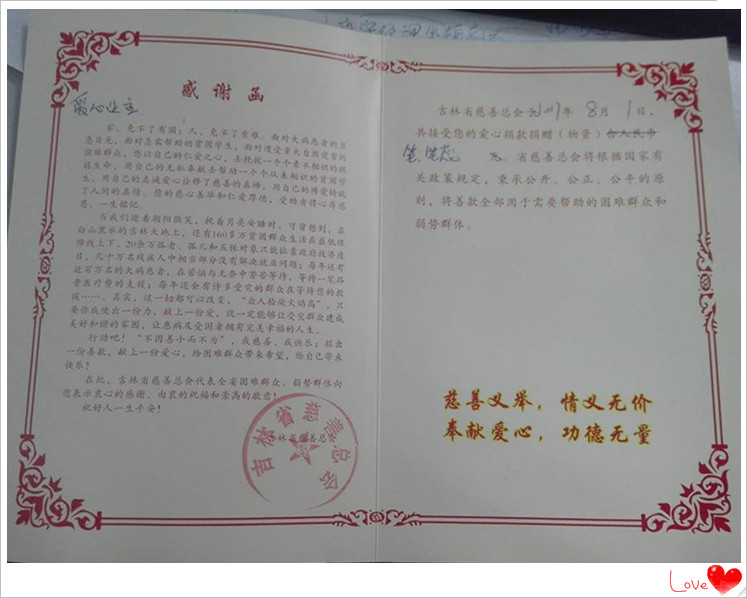 感谢函
爱心业主
家,免不了有困;人,免不了有难。面对大病患者的焦
急目光,面对急需帮助的贫困学生,面对遭受重大自然灾害的
困难群众,您以自己的仁爱之心,去拯救一个个素不相识的脆
弱生命,用自己的无私奉献去帮助一个个从未相识的贫困学
生,用自己的真诚爱心诠释了慈善的真谛,用自己的博爱铸就
了人间的真情。您的慈心善举和仁爱厚德,受赠者将心存感
恩,一生铭记。
当我们迎着朝阳微笑,枕着月亮安睡时,可曾想到,在
白山黑水的吉林大地上,还有160多万贫困群众生活在最低保
障线上下,20余万孤老、孤儿和五保对象只能依靠政府救济度
日,几十万名残疾人中相当部分没有解决就业问题;每年还有
近百万名的大病患者,在苦恼与无奈中苦苦等待,等待一笔昂
贵医疗费的支援;每年还会有许多受灾的群众在等待您的救
援……。其实,这一切都可以改变,“众人拾柴火焰高”,只
要你我使出一份力,献上一份爱,就一定能够让受灾群众建成
美好和谐的家园,让患病及受困者拥有完美幸福的人生。
行动吧!“不因善小而不为”,我慈善、我快乐;捐出
一份善款,献上一份爱心,给困难群众带来希望,给自己带来
快乐!
在此,吉林省慈善总会代表全省困难群众、弱势群体向
您表示衷心的感谢、由衷的祝福和崇高的敬意!
祝好人一生平安!
吉林省慈善总会
吉林省慈善总会
吉林省慈善总会 2017年 8月 1日,
共接受您的爱心捐款捐赠(物资)合人民币
元。省慈善总会将根据国家有
关政策规定,秉承公开、公正、公平的原
则,将善款全部用于需要帮助的困难群众和
弱势群体。
慈善义举,情义无价
奉献爱心,功德无量
Love